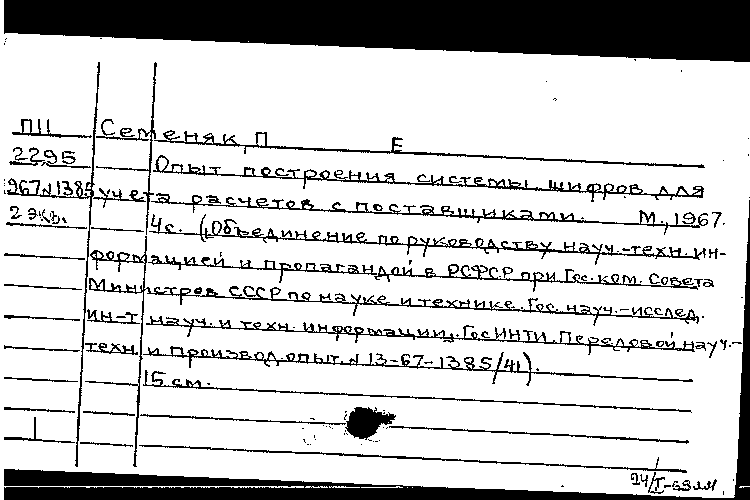 П11 Семеняк, П Е
2295 Опыт построения системы шифров для
967 N 1385 учета расчетов с поставщиками. М., 1967.
2 экз. 4с. (Объединение по руководству науч.-техн. ин-
формацией и пропагандой в РСФСР при Гос. ком. Совета
Министров СССР по науке и технике. Гос. науч.-исслед.
ин-т науч. и техн. информации. ГосИНТИ. Передовой науч.-
техн. и производ. опыт. N 13-67-1385/41).
15 см.